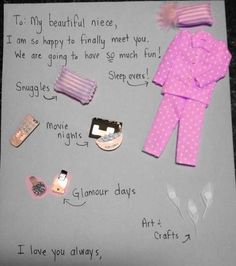 To: My beautiful niece,
I am so happy to finally meet you.
We are going to have so much fun!
Sleepovers!
Snuggles
Movie
nights
Glamour days
Art &
Crafts
I love you always,